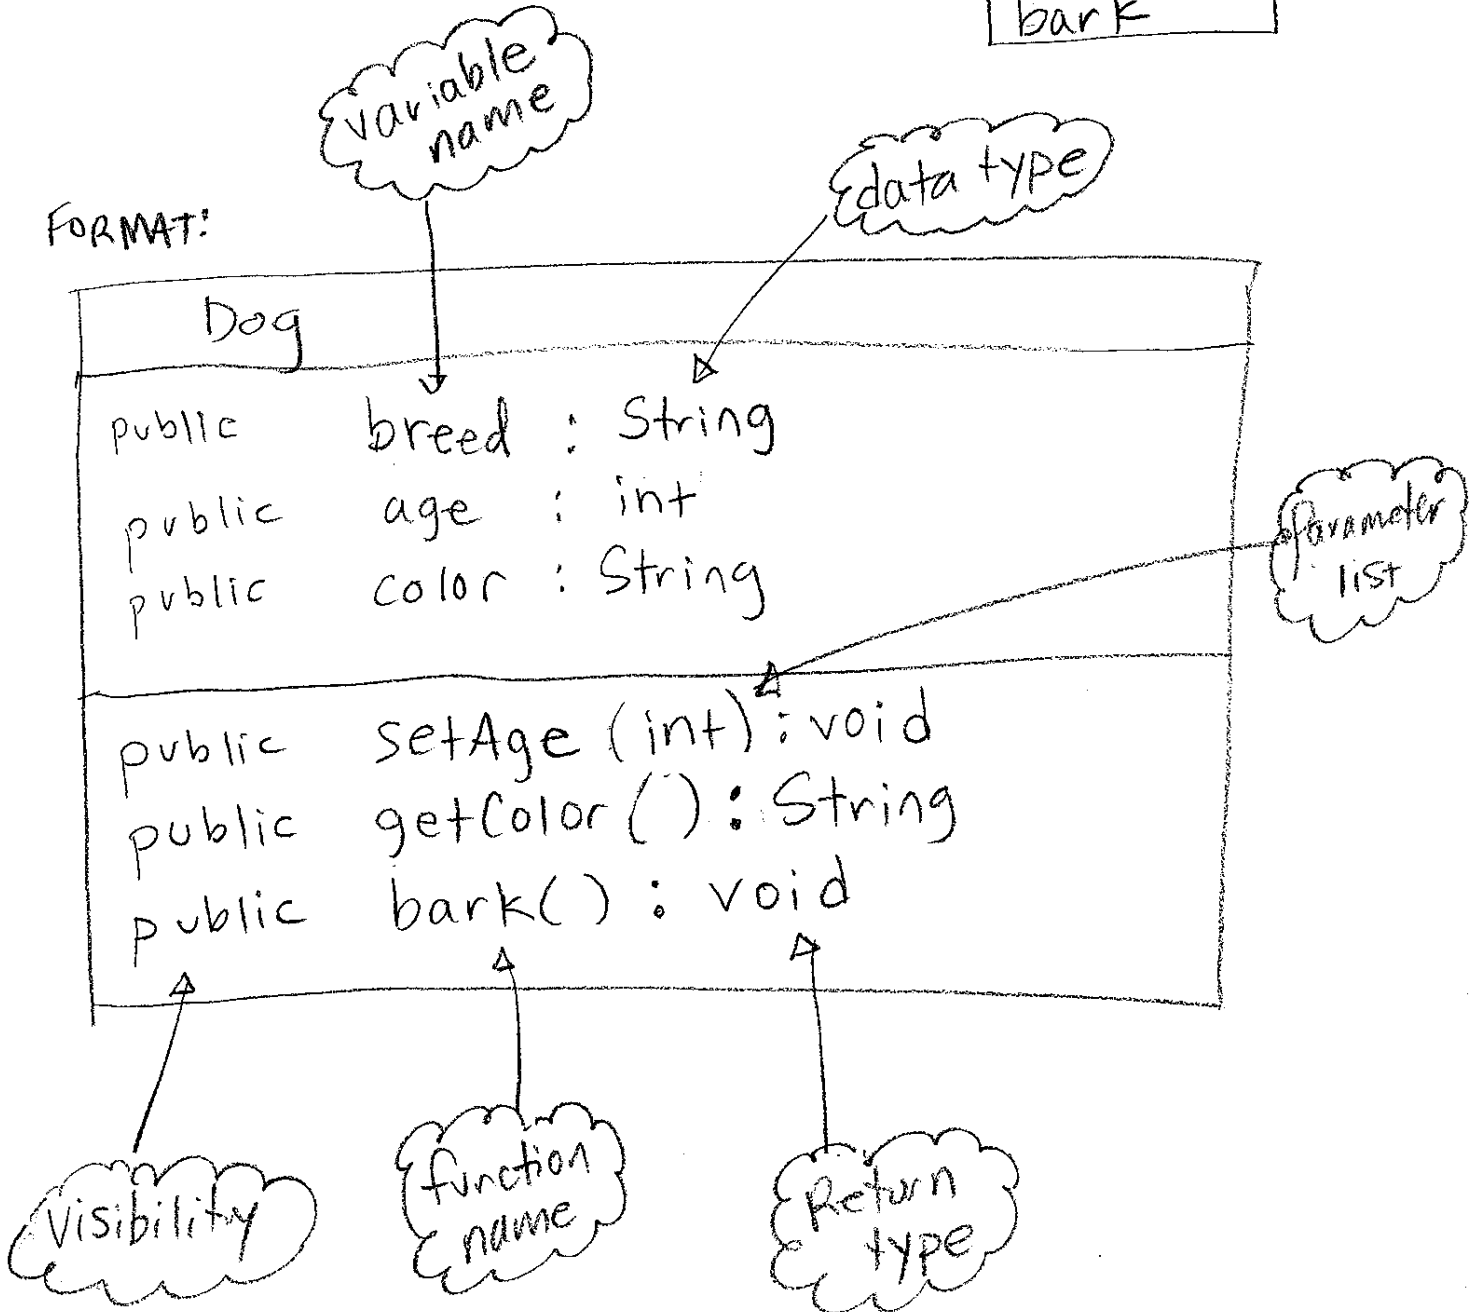 bark
variable
name
data type
FORMAT:
Dog
public breed : String
public age : int
public color : String
parameter
list
public setAge (int) : void
public getColor ( ) : String
public bark( ) : void
visibility
function
name
Return
type